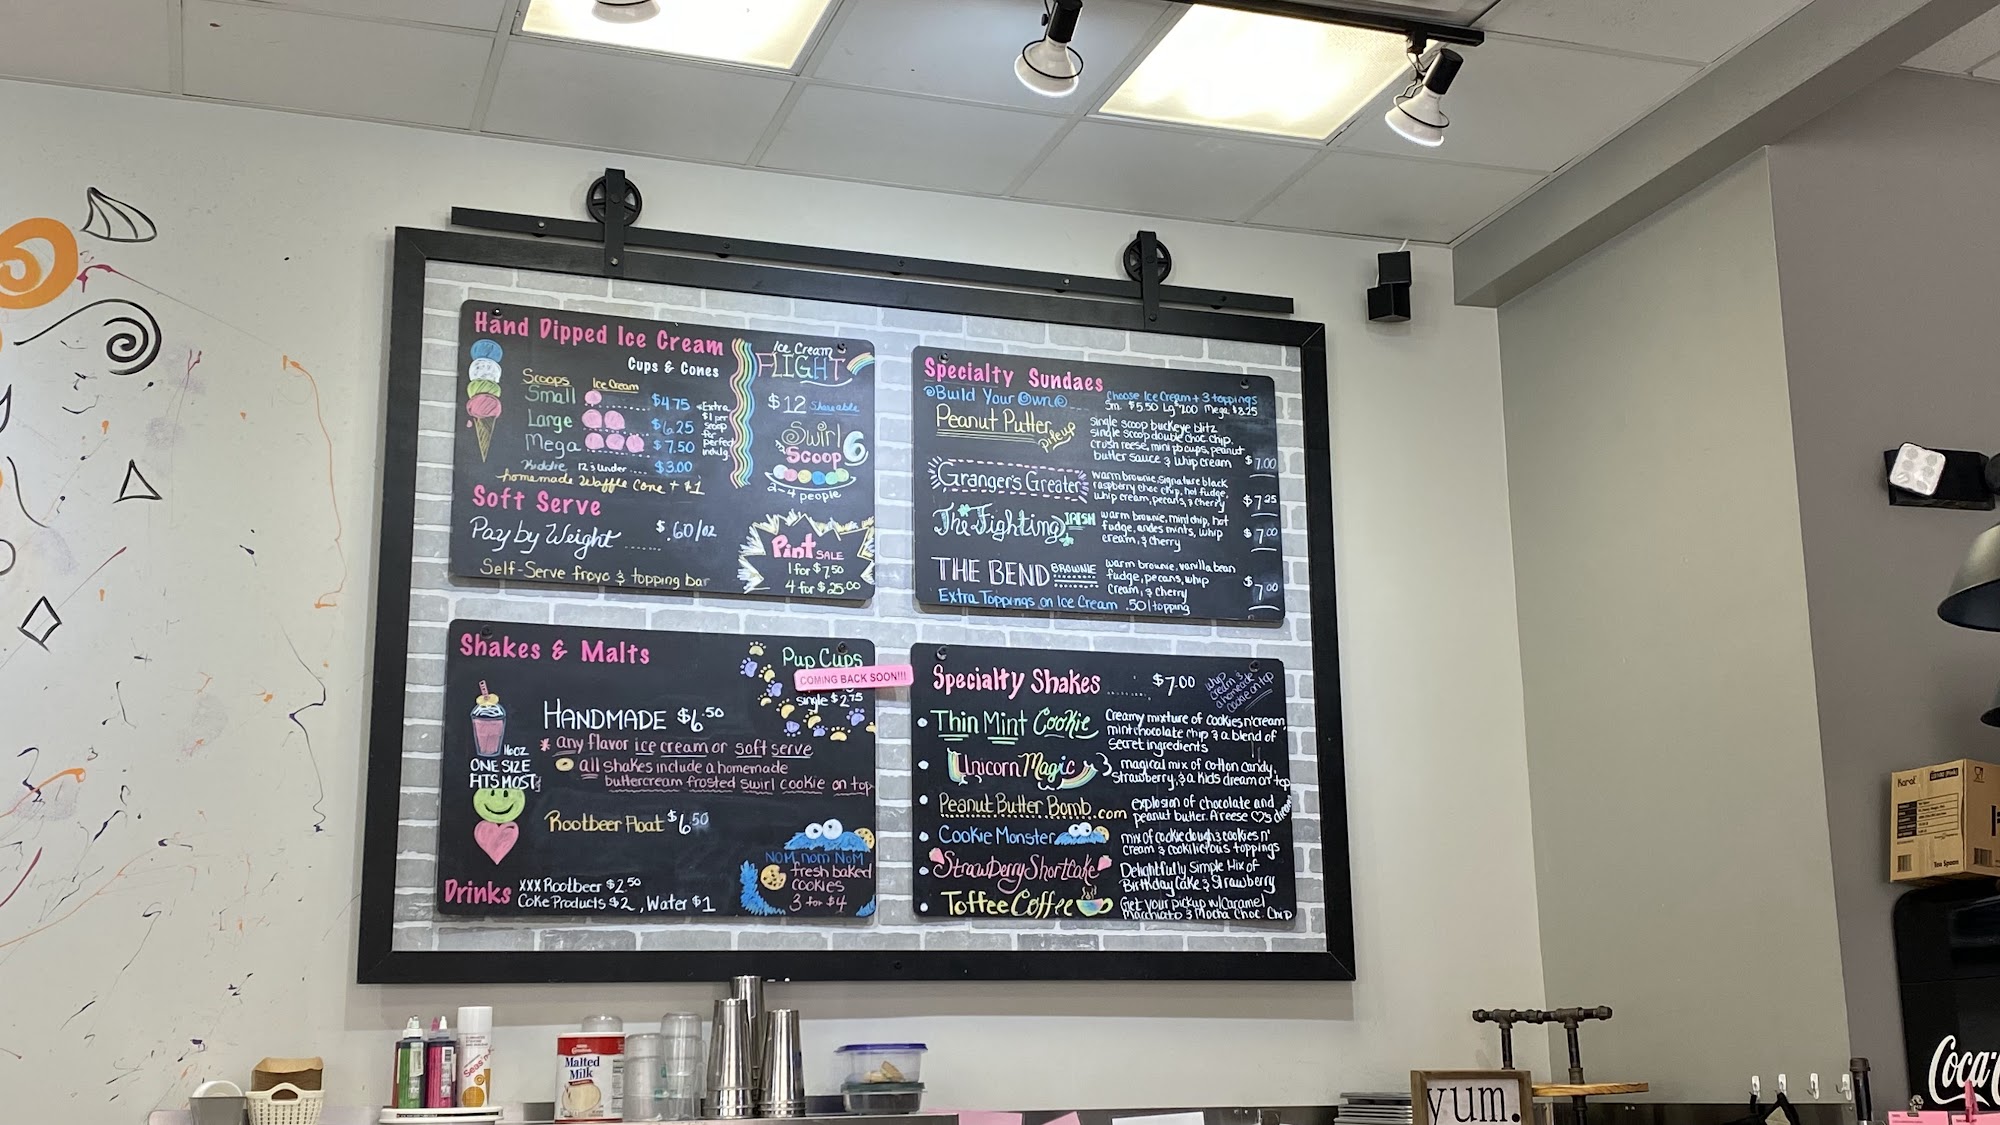 Hand Dipped Ice Cream
Cups & Cones
Scoops Ice Cream
Small $4.75
Large $6.25
Mega $7.50
Kiddie 12 & under .... $3.00
homemade Waffle Cone + $1
*Extra
$1 per
scoop
for
perfect
indulg.
Soft Serve
Pay by Weight ...... $.60/oz
Self-Serve froyo & topping bar
Ice Cream
FLIGHT
$12 Shareable
Swirl 6
Scoop
2-4 people
Pint SALE
1 for $7.50
4 for $25.00
Specialty Sundaes
Build Your Own
Choose Ice Cream + 3 toppings
Sm. $5.50 Lg $7.00 Mega $8.25
Peanut Putter
pileup
single scoop buckeye blitz
single scoop double choc chip.
crush reese, mini pb cups, peanut
butter sauce & whip cream $7.00
Granger's Greater
warm brownie, signature black
raspberry choc chip, hot fudge,
whip cream, pecans, & cherry $7.25
The Fighting IRISH
warm brownie, mint chip, hot
fudge, andes mints, whip
cream, & cherry $7.00
THE BEND BROWNIE
warm brownie, vanilla bean
fudge, pecans, whip
cream, & cherry $7.00
Extra Toppings on Ice Cream .50/topping
Shakes & Malts
Pup Cups
COMING BACK SOON!!!
single $2.75
HANDMADE $6.50
* any flavor ice cream or soft serve
all shakes include a homemade
buttercream frosted swirl cookie on top
16oz
ONE SIZE
FITS MOST
Rootbeer Float $6.50
NOM nom NOM
fresh baked
cookies
3 for $4
Drinks
XXX Rootbeer $2.50
Coke Products $2, Water $1
Specialty Shakes ...... $7.00
whip
cream &
a homemade
cookie on top
Thin Mint Cookie
Creamy mixture of cookies n' cream
mint chocolate chip & a blend of
secret ingredients
Unicorn Magic
magical mix of cotton candy,
strawberry, & a kids dream on top
Peanut Butter Bomb.com
explosion of chocolate and
peanut butter. A reese ♡'s dream
Cookie Monster
mix of cookie dough & cookies n'
cream & cookilicious toppings
Strawberry Shortcake
Delightfully Simple Mix of
Birthday Cake & Strawberry
Toffee Coffee
Get your pickup w/ Caramel
Macchiato & Mocha Choc. Chip
Karat
Tea Spoon
Malted
Milk
yum.
Coca-C